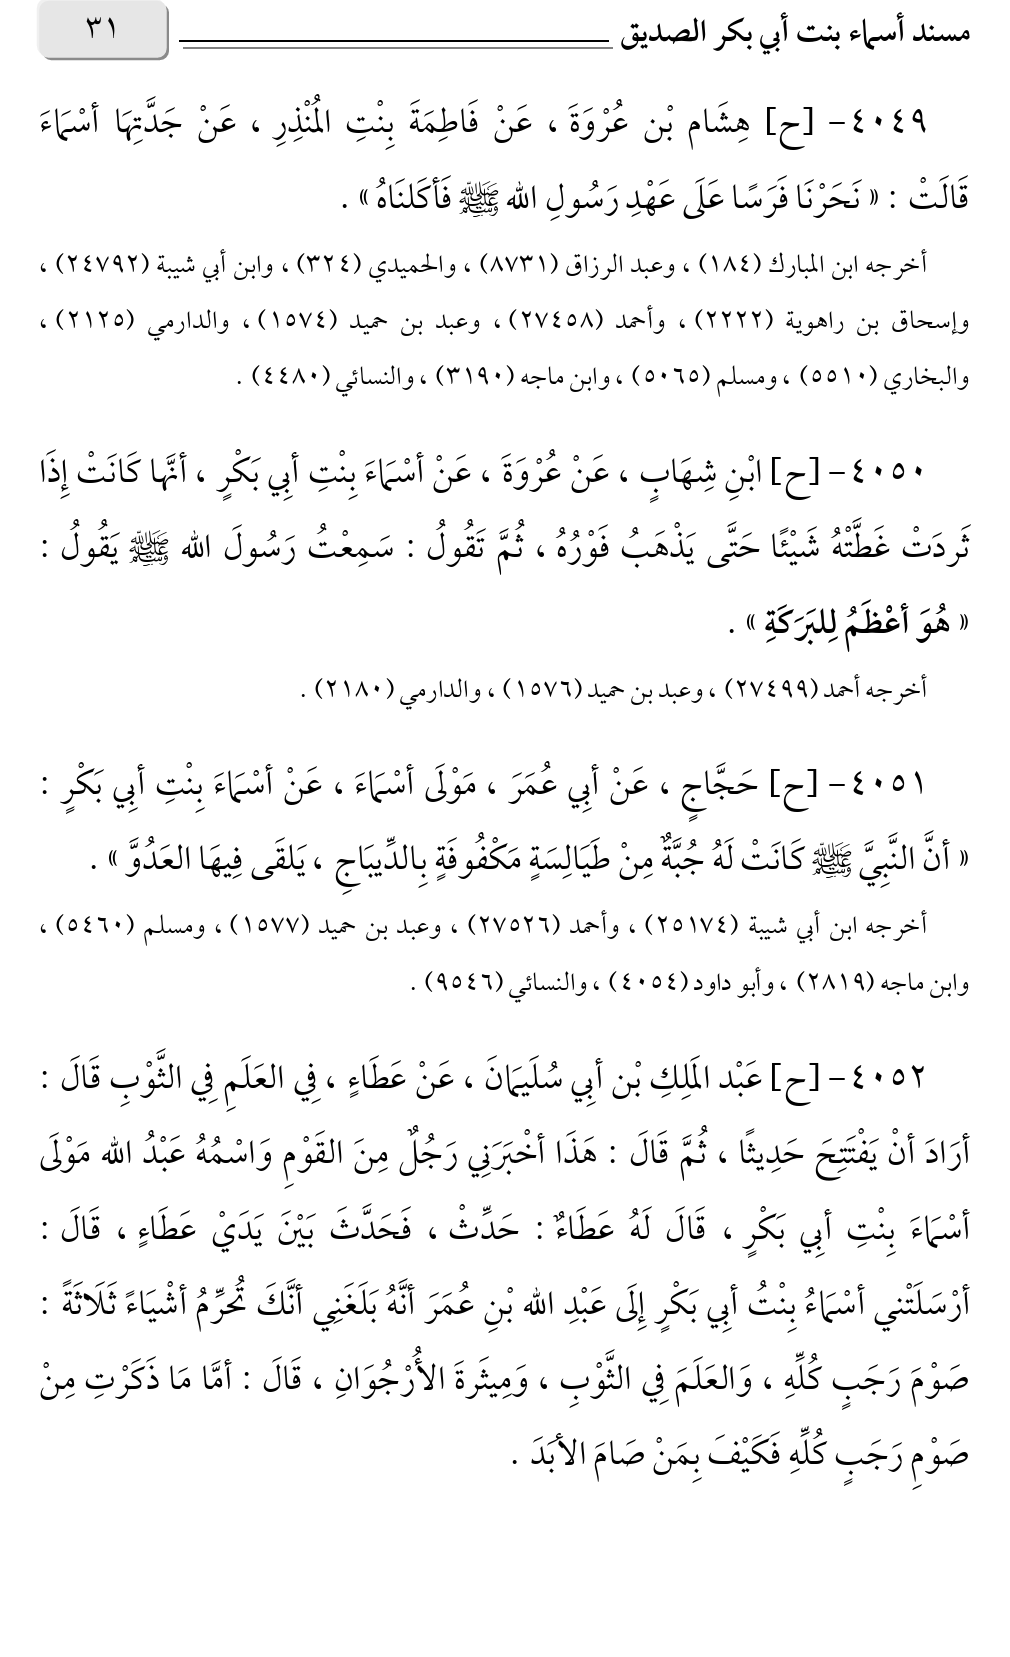 مسند أسماء بنت أبي بكر الصديق ٣١
٤٠٤٩- [ح] هِشَام بْن عُرْوَةَ ، عَنْ فَاطِمَةَ بِنْتِ المُنْذِرِ ، عَنْ جَدَّتِهَا أسْمَاءَ
قَالَتْ : « نَحَرْنَا فَرَسًا عَلَى عَهْدِ رَسُولِ الله ﷺ فَأكَلنَاهُ » .
أخرجه ابن المبارك (١٨٤) ، وعبد الرزاق (٨٧٣١) ، والحميدي (٣٢٤) ، وابن أبي شيبة (٢٤٧٩٢) ،
وإسحاق بن راهوية (٢٢٢٢) ، وأحمد (٢٧٤٥٨) ، وعبد بن حميد (١٥٧٤) ، والدارمي (٢١٢٥) ،
والبخاري (٥٥١٠) ، ومسلم (٥٠٦٥) ، وابن ماجه (٣١٩٠) ، والنسائي (٤٤٨٠) .
٤٠٥٠- [ح] ابْنِ شِهَابٍ ، عَنْ عُرْوَةَ ، عَنْ أسْمَاءَ بِنْتِ أبِي بَكْرٍ ، أنَّها كَانَتْ إِذَا
ثَردَتْ غَطَّتْهُ شَيْئًا حَتَّى يَذْهَبُ فَوْرُهُ ، ثُمَّ تَقُولُ : سَمِعْتُ رَسُولَ الله ﷺ يَقُولُ :
« هُوَ أعْظَمُ لِلبَرَكَةِ » .
أخرجه أحمد (٢٧٤٩٩) ، وعبد بن حميد (١٥٧٦) ، والدارمي (٢١٨٠) .
٤٠٥١- [ح] حَجَّاجٍ ، عَنْ أبِي عُمَرَ ، مَوْلَى أسْمَاءَ ، عَنْ أسْمَاءَ بِنْتِ أبِي بَكْرٍ :
« أنَّ النَّبِيَّ ﷺ كَانَتْ لَهُ جُبَّةٌ مِنْ طَيَالِسَةٍ مَكْفُوفَةٍ بِالدِّيبَاجِ ، يَلقَى فِيهَا العَدُوَّ » .
أخرجه ابن أبي شيبة (٢٥١٧٤) ، وأحمد (٢٧٥٢٦) ، وعبد بن حميد (١٥٧٧) ، ومسلم (٥٤٦٠) ،
وابن ماجه (٢٨١٩) ، وأبو داود (٤٠٥٤) ، والنسائي (٩٥٤٦) .
٤٠٥٢- [ح] عَبْد المَلِكِ بْن أبِي سُلَيمَانَ ، عَنْ عَطَاءٍ ، فِي العَلَمِ فِي الثَّوْبِ قَالَ :
أرَادَ أنْ يَفْتَتِحَ حَدِيثًا ، ثُمَّ قَالَ : هَذَا أخْبَرَنِي رَجُلٌ مِنَ القَوْمِ وَاسْمُهُ عَبْدُ الله مَوْلَى
أسْمَاءَ بِنْتِ أبِي بَكْرٍ ، قَالَ لَهُ عَطَاءٌ : حَدِّثْ ، فَحَدَّثَ بَيْنَ يَدَيْ عَطَاءٍ ، قَالَ :
أرْسَلَتْني أسْمَاءُ بِنْتُ أبِي بَكْرٍ إِلَى عَبْدِ الله بْنِ عُمَرَ أنَّهُ بَلَغَنِي أنَّكَ تُحَرِّمُ أشْيَاءً ثَلَاثَةً :
صَوْمَ رَجَبٍ كُلِّهِ ، وَالعَلَمَ فِي الثَّوْبِ ، وَمِيثَرةَ الأُرْجُوَانِ ، قَالَ : أمَّا مَا ذَكَرْتِ مِنْ
صَوْمِ رَجَبٍ كُلِّهِ فَكَيْفَ بِمَنْ صَامَ الأبَدَ .